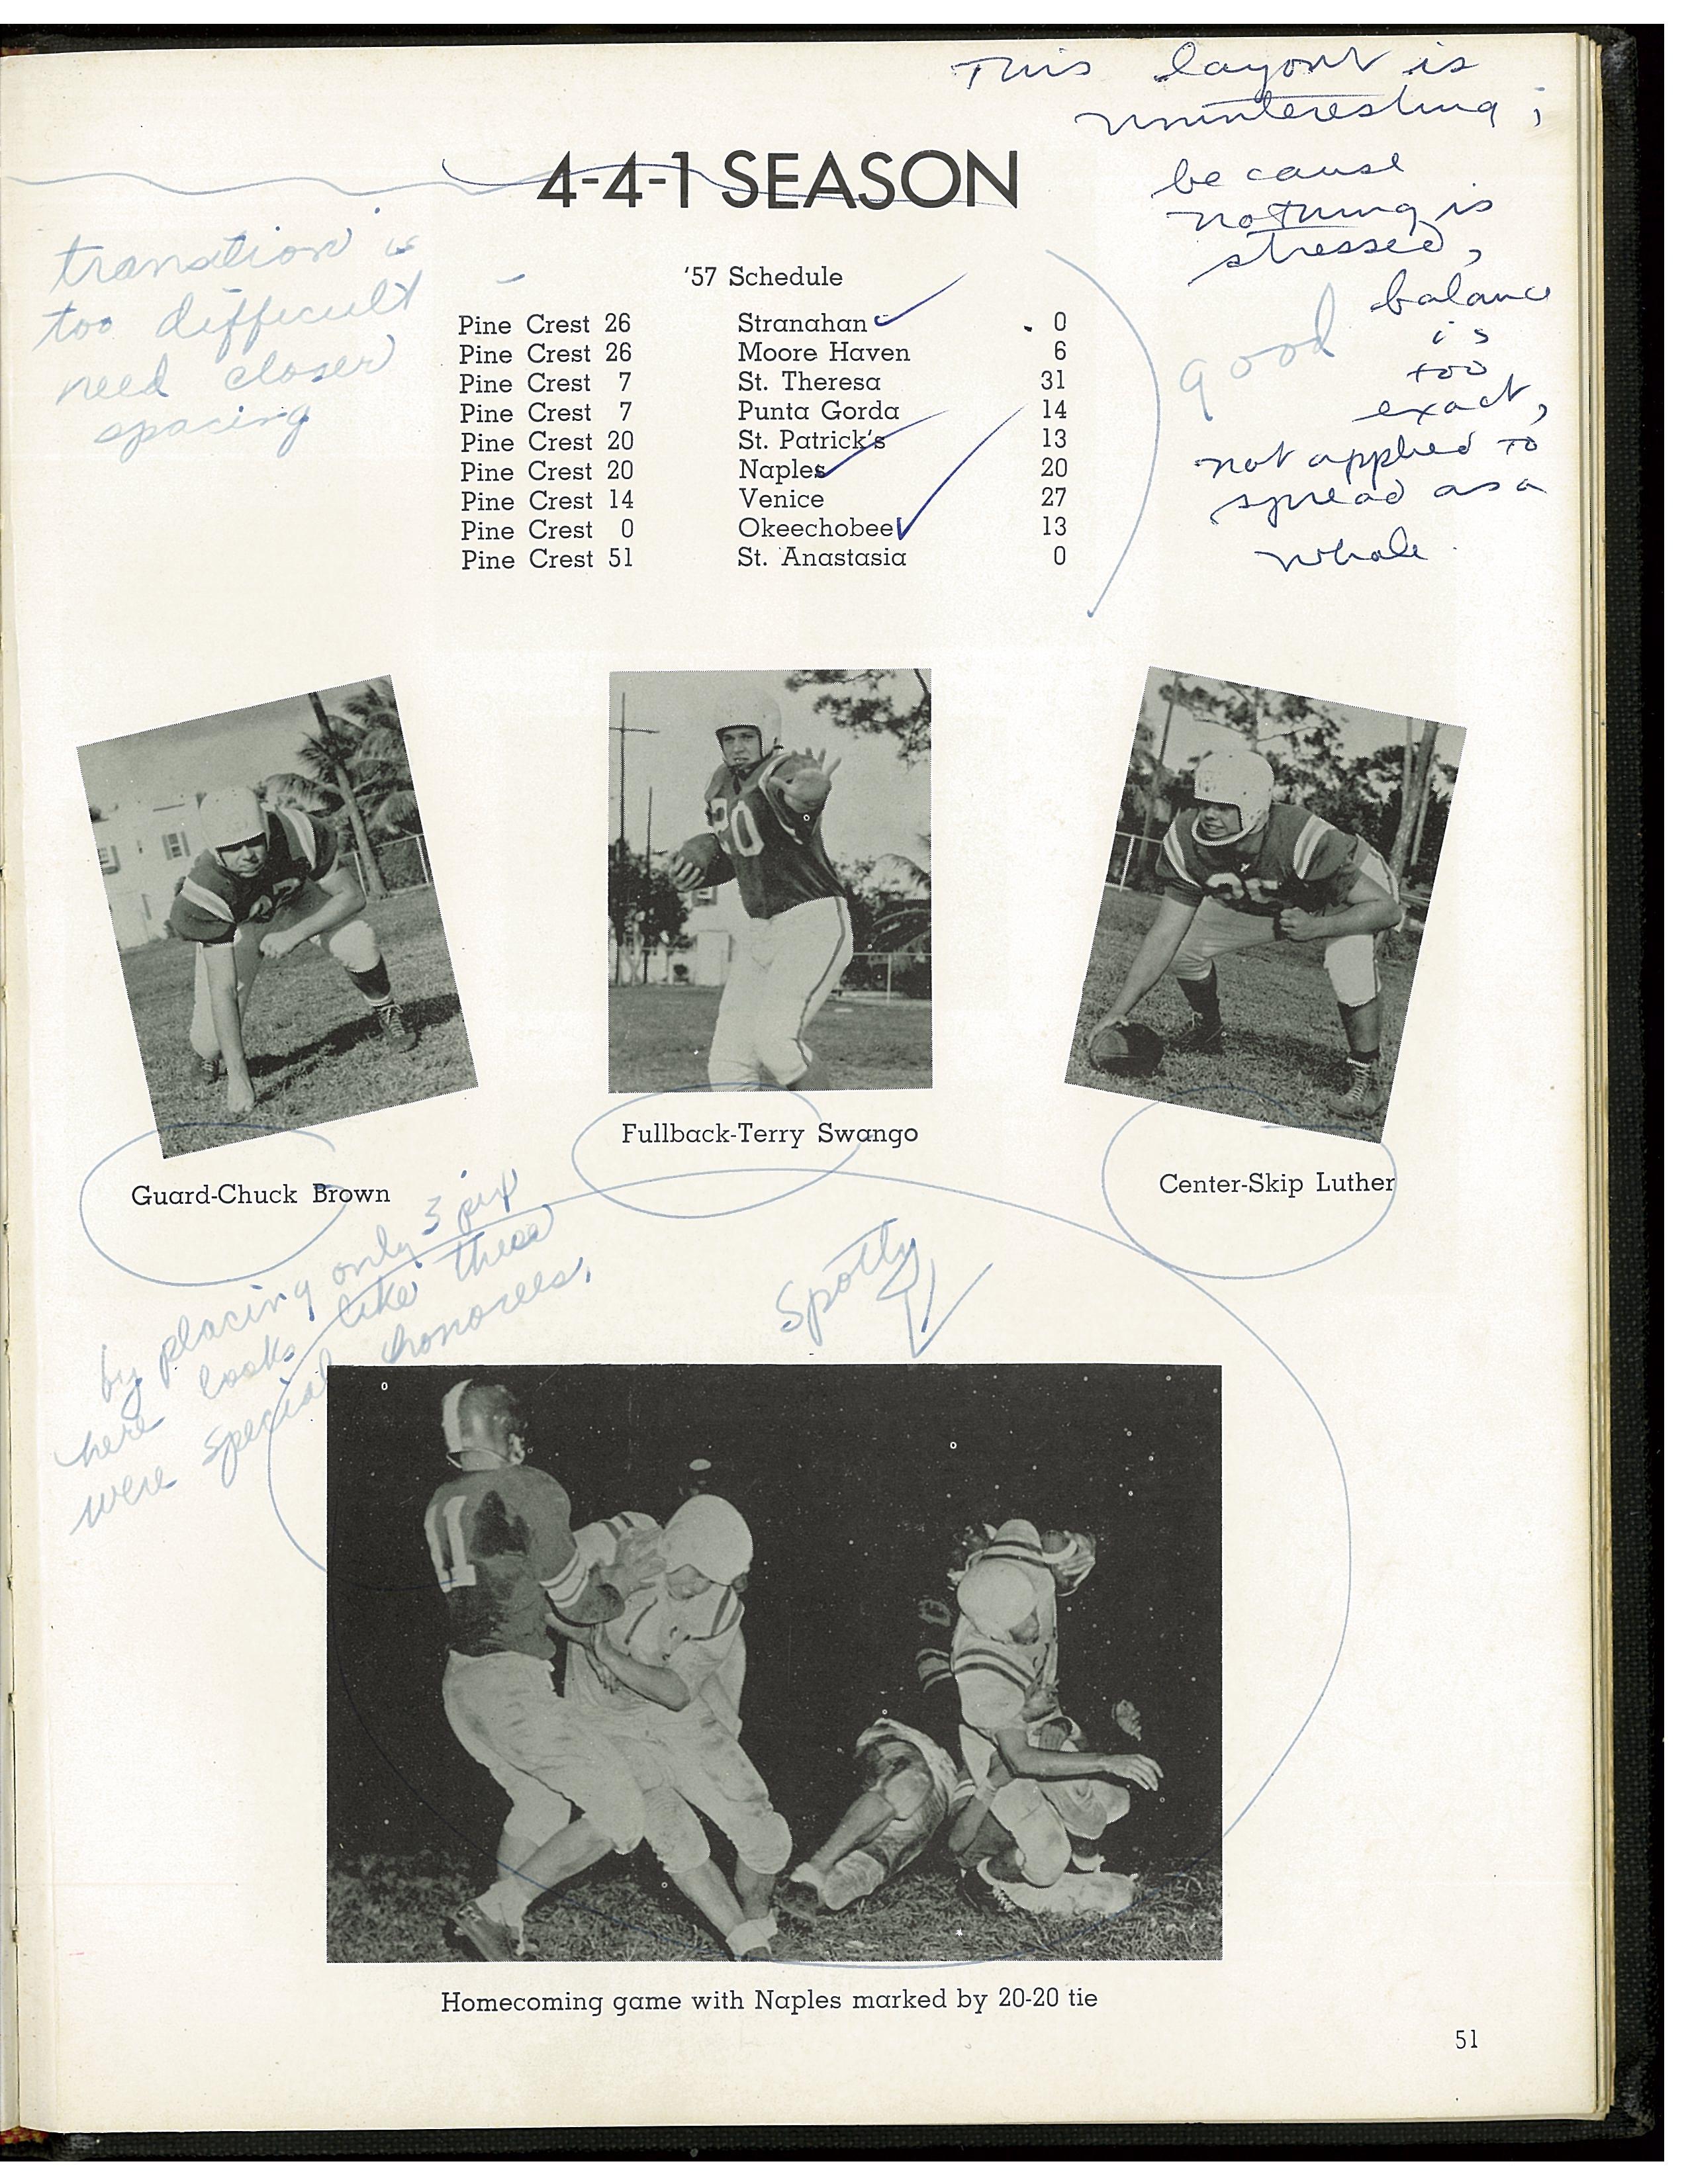 This layout is
uninteresting;
because
nothing is
stressed,
balance
is
too
exact,
not applied to
spread as a
whole.
4-4-1 SEASON
transition is
too difficult
need closer
spacing
good
'57 Schedule
Pine Crest 26 Stranahan 0
Pine Crest 26 Moore Haven 6
Pine Crest 7 St. Theresa 31
Pine Crest 7 Punta Gorda 14
Pine Crest 20 St. Patrick's 13
Pine Crest 20 Naples 20
Pine Crest 14 Venice 27
Pine Crest 0 Okeechobee 13
Pine Crest 51 St. Anastasia 0
11
Guard-Chuck Brown
Fullback-Terry Swango
Center-Skip Luther
by placing only 3 pix
here looks like these
were special honorees.
Spotty
Homecoming game with Naples marked by 20-20 tie
51